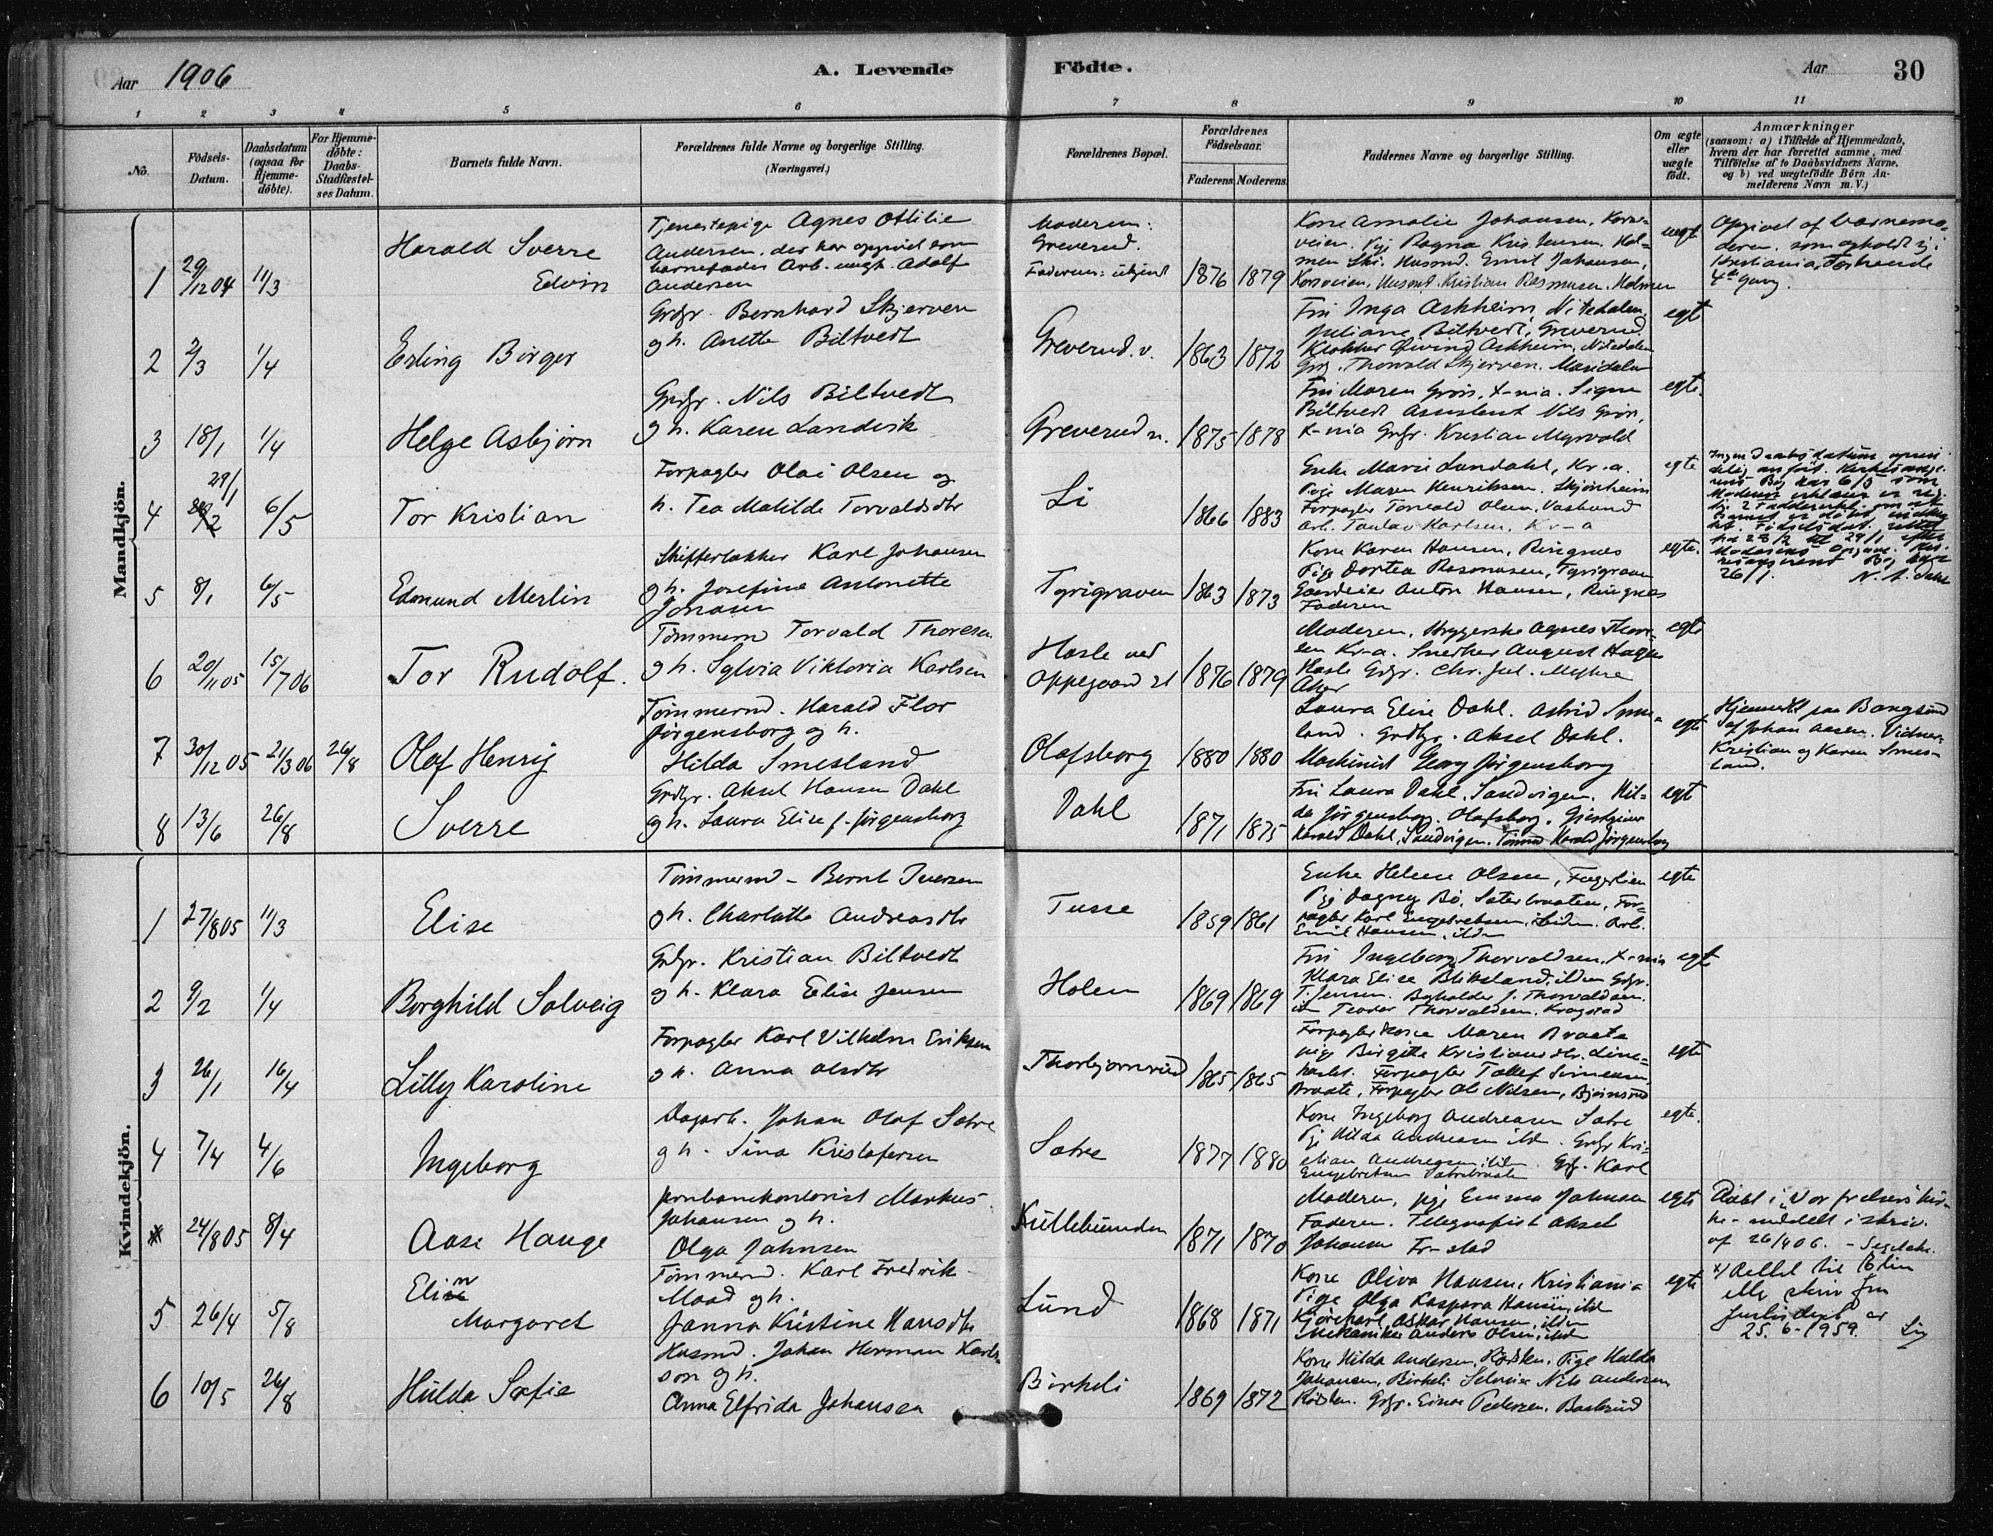 Aar 1906
A. Levende Födte.
Aar 30
1 2 3 4 5 6 7 8 9 10 11
No. Födsels-Datum. Daabsdatum (ogsaa for Hjemmedöbte). For Hjemmedöbte: Daabs-Stadfæstelses Datum. Barnets fulde Navn. Forældrenes fulde Navne og borgerlige Stilling. (Næringsvei.) Forældrenes Bopæl. Forældrenes Födselsaar. Faderens. Moderens. Faddernes Navne og borgerlige Stilling. Om ægte eller uægte födt. Anmærkninger (saasom: a) i Tilfælde af Hjemmedaab, hvem der har forrettet samme, med Tilföielse af to Daabsvidners Navne, og b) ved uægtefödte Börn Anmelderens Navn m. V.)
Mandkjön.
1 29/12 04 11/3 Harald Sverre Edvin
Tjenestepige Agnes Ottilie
Andersen, der har opgivet som
barnefader Arb. ungk. Adolf
Andersen
Moderen: Greverud.
Faderen: ukjend 1876 1879
Kone Amalie Johansen, Korsveien. Pige Ragna Kristensen, Holmen Ski. Husmd. Emil Johansen,
Korsveien, Husmd. Kristian Rasmusen. Holmen
uegt
Opgivet af barnemoderen, som opholdt sig i
Kristiania, Forseende
4de Gang.
2 2/3 1/4 Erling Birger
Grdbr. Bernhard Skjerven
og h. Anette Biltvedt
Greverud. v. 1863 1872
Fru Inga Askheim, Nitedalen,
Juliane Biltvedt, Greverud.
Klokker Øivind Askheim, Nitedalen
Grbr. Thorvald Skjerven. Maridalen
egt
3 18/1 1/4 Helge Asbjørn
Grdbr. Nils Biltvedt
og h. Karen Landvik
Greverud n. 1875 1878
Fru Maren Grøn, X-nia. Signe
Biltvedt Assistent Nils Grøn,
X-nia Grbr. Kristian Myrvold
egte.
4 29/1 28/2 6/5 Tor Kristian
Forpagter Olai Olsen og
h. Tea Matilde Torvaldsdtr
Li 1866 1883
Enke Marie Lundahl, Kr-a.
Pige Maren Henriksen, Skjønheim
Forpagter Torvald Olsen,
arb. Karlsen, Kr-a
egte
Ingen Daabsdatum oprindelig anført.
6/5 som
Fødselsdat. rettet
fra 28/2 til 29/1 efter
Moderens Opgave.
26/1. N. A. Dahl
5 8/1 6/5 Edmund Merlin
Skiftertækker Karl Johansen
og h. Josefine Antonette
Jonasen
Tyrigraven 1863 1873
Kone Karen Hansen, Ringnes
Pige Dortea Rasmusen, Tyrigraven
Gaardeier Anton Hansen, Ringnes
Faderen
egte.
6 20/11 05 15/7 06 Tor Rudolf.
Tømmermd Torvald Thoresen
og h. Sylvia Viktoria Karlsen
Hasle ved
Oppegaard st 1876 1879
Moderen, Strygerske Agnes Thoresen Kr-a. Snedker August Hagen
Hasle Grdbr. Chr. Jul. Myhre
Aker
egte
7 30/12 05 21/3 06 26/8 Olaf Henrij
Tømmermd. Harald Flor
Jørgensborg og h.
Hilda Smesland
Olafsborg 1880 1880
Laura Elise Dahl. Astrid Smesland. Grdbr. Aksel Dahl.
Maskinist Georg Jørgensborg
egte
Hjemmedt paa Bangsund
af Johan Aasen. Vidner:
Kristian og Karen Smesland.
8 13/6 26/8 Sverre
Grdbr. Aksel Hansen Dahl
og h. Laura Elise f. Jørgensborg
Dahl 1871 1875
Fru Laura Dahl, Sandvigen. Hilda Jørgensborg. Olafsborg. Gjestgiver
Harald Dahl, Sandvigen. Tømmd Harald Jørgensborg
egt
Kvindekjön.
1 27/8 05 11/3 Elise
Tømmermd - Bernt Iversen
og h. Charlotte Andreasdtr
Tusse 1859 1861
Enke Helene Olsen, Fagerlien
Pige Dagny Bø, Sæterbraaten, Forpagter Karl Engebretsen, Liden. Arb.
Emil Hansen, ibdm
egte
2 9/2 1/4 Borghild Solveig
Grdbr. Kristian Biltvedt
og h. Klara Elise Jensen
Holen 1869 1869
Fru Ingeborg Thorvaldsen, X-nia
Klara Elise Bliksland, ibdm Grbr.
T. Jensen. Bogholder J. Thorvaldsen.
Teodor Thorvaldsen. Kragstad
egte
3 26/1 16/4 Lilly Karoline
Forpagter Karl Vilhelm Eriksen
og h. Anna Olsdtr
Thorbjørnsrud 1865 1865
Forpagterkone Maren Braate
pige Birgitte Kristiansdtr.
Forpagter Tollef Simensen,
Braate, Forpagter Ole Nilsen, Bjørnsrud
egte
4 7/4 4/6 Ingeborg
Dagarb. Johan Olaf Sætre
og h. Sina Kristofersen
Sætre 1877 1880
Kone Ingeborg Andreasen Sætre
Pige Hilda Andreasen ibdm. Grbr Kristian Andreasen, ibdm. Grbr. Karl
Engebretsen Sæterbraaten
egte.
* 24/8 05 8/4 Aase Hauge
Jernbanekontorist Markus
Johansen og h.
Olga Johnsen
Kullebunden 1871 1870
Moderen, pige Emma Johnsen
Faderen. Telegrafist Aksel
Johansen Fr-stad
egte
Døbt i "Vor frelsers kirke - meddelt i skriv.
af 26/4 06.
5 26/4 5/8 Elin Margaret
Tømmermd. Karl Fredrik
Maad og h.
Janna Kristine Hansdtr
Lund 1868 1871
Kone Oliva Hansen, Kristiania
Pige Olga Kaspara Hansen, ibdm
Kjørekarl, Oskar Hansen, ibdm
Mekaniker Anders Olsen, ibdm
egte
x) Rettet til Elin
efter skriv fra
Justisdept av
25.6-1959.
6 10/5 26/8 Hulda Sofie
Husmd. Johan Herman Karlsson og h.
Anna Elfrida Johansen
Birkeli 1869 1872
Kone Hilda Andersen, Rødsten. Pige Hulda
Johansen, Birkeli Selveier Nils Andersen
Rødsten. Grbr. Einar Pedersen.